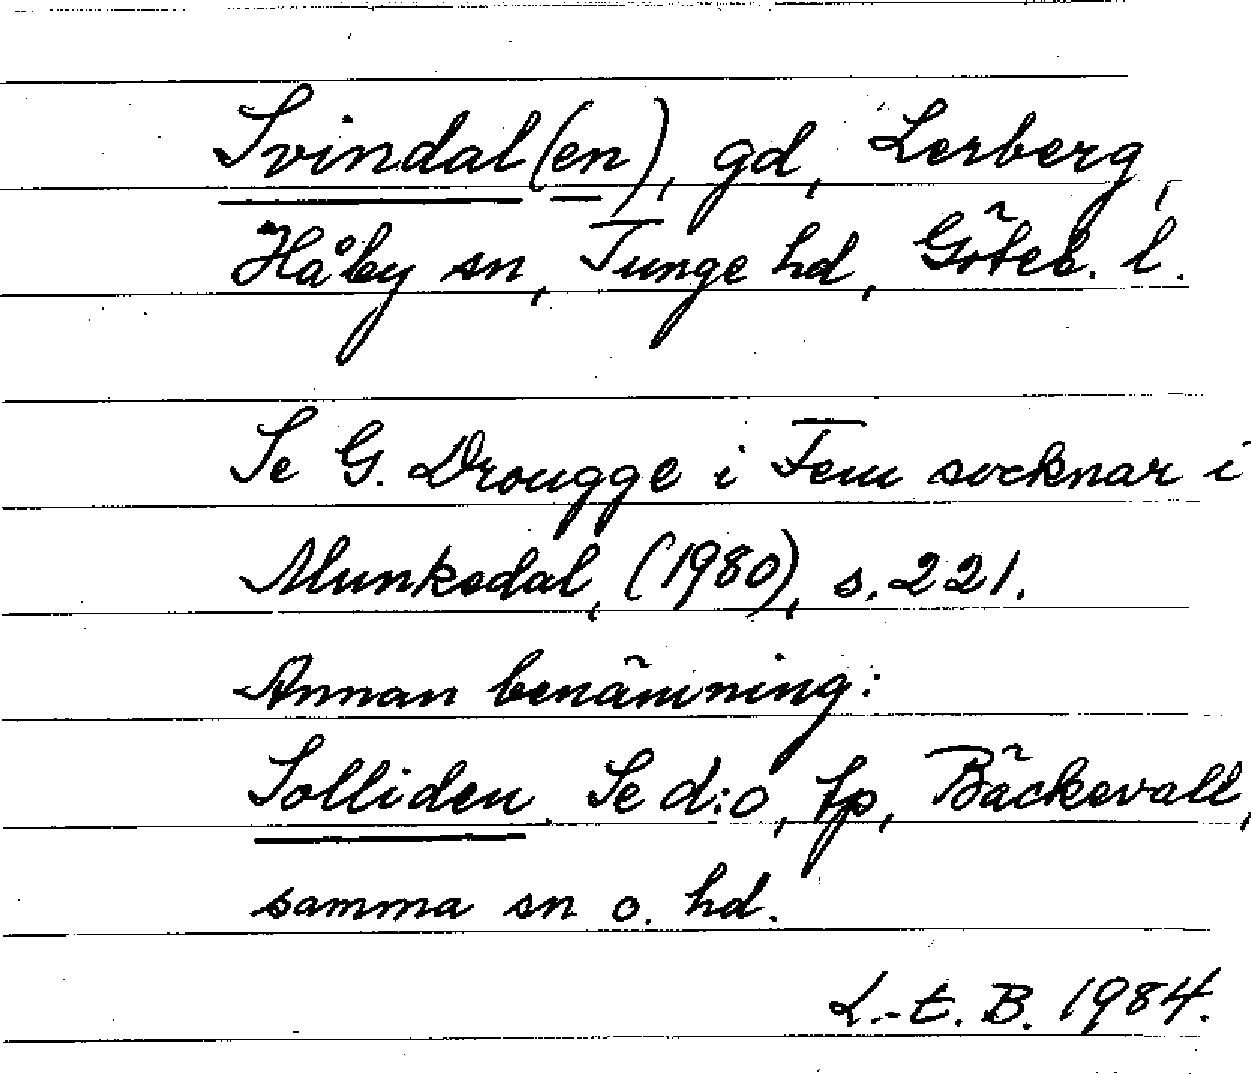 Svindal(en), gd, Lerberg,
Håby sn, Tunge hd, Göteb. l.
Se G. Drougge i Fem socknar i
Munkedal, (1980), s. 221.
Annan benämning:
Solliden. Se d:o, tp, Bäckevall,
samma sn o. hd.
L.-E. B. 1984.